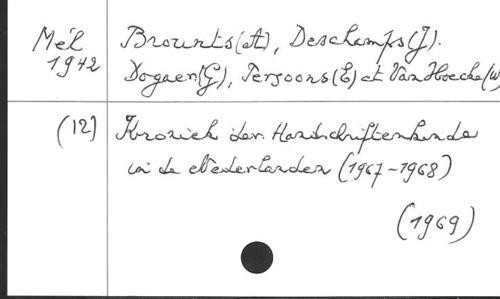 Mél Brounts(A), Deschamps(J).
1942 Dogaer(G), Persoons(E) et Van Hoecke(W)
(12) Kroniek der Handschriftenkunde
in de Nederlanden (1967-1968)
(1969)